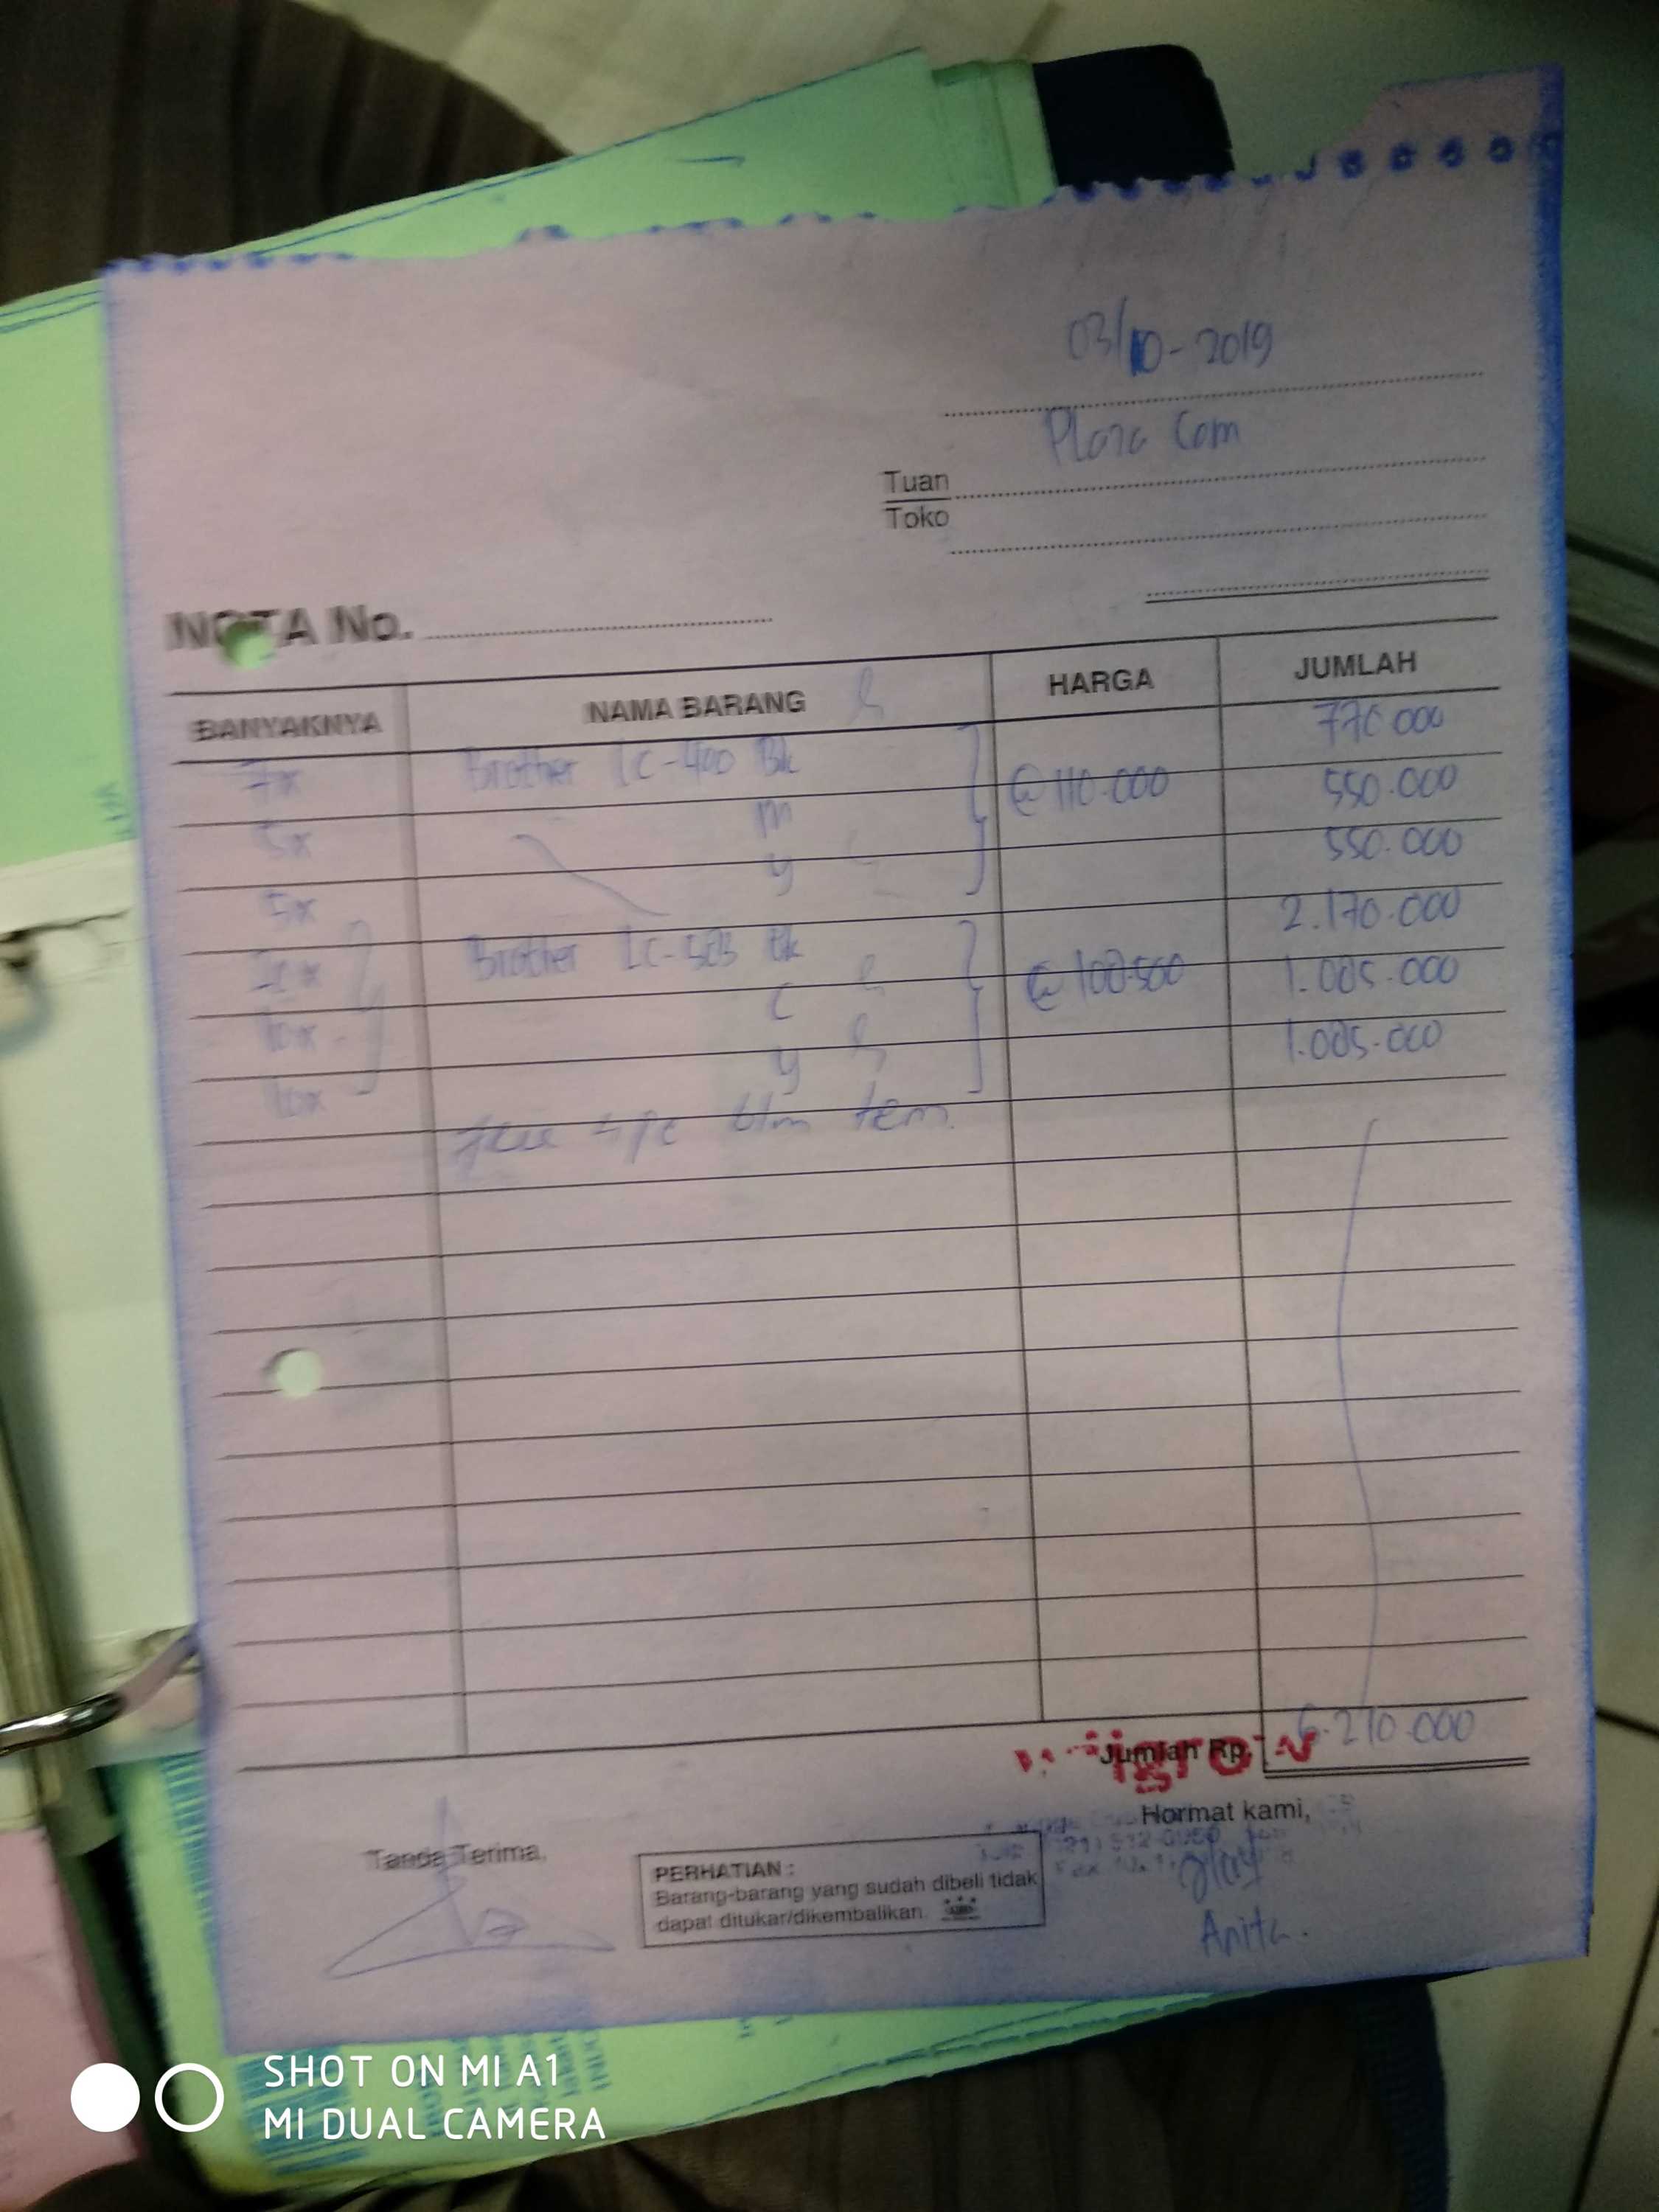 03/10-2019
Plaza Com
Tuan
Toko
NOTA No.
BANYAKNYA NAMA BARANG HARGA JUMLAH
7x Brother LC-400 Bk 770.000
5x m @ 110.000 550.000
5x y 550.000
Brother LC-583 Bk 2.170.000
10x c @ 108.500 1.085.000
10x y 1.085.000
blm
Jumlah Rp. 6.210.000
Hormat kami,
Tanda Terima,
PERHATIAN :
Barang-barang yang sudah dibeli tidak
dapat ditukar/dikembalikan.
Anita.
SHOT ON MI A1
MI DUAL CAMERA